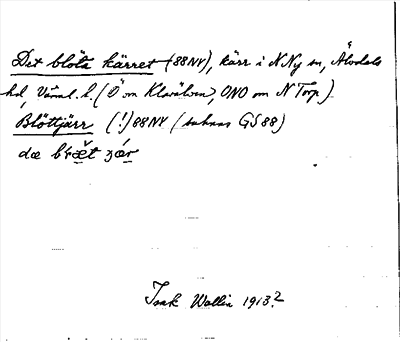 Det blöta kärret (88NV), kärr i N Ny sn, Älvdals
hd, Värml. l. (Ö om Klarälven, ONO om N Torp)
Blöttjärr (!) 88NV (saknas GS88)
dæ
Isak Wallin 1913?